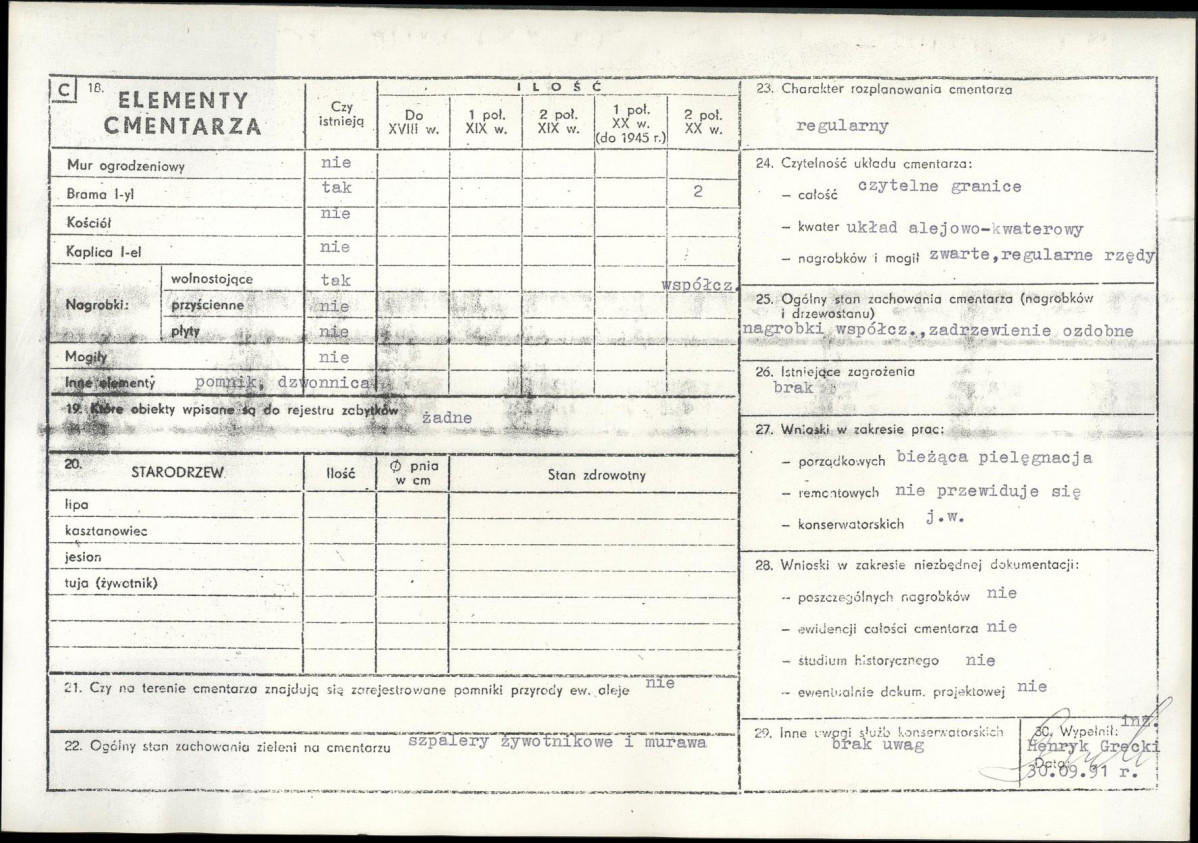 C 18. ELEMENTY
CMENTARZA
Czy
istnieją
I L O Ś Ć
Do
XVIII w.
1 poł.
XIX w.
2 poł.
XIX w.
1 poł.
XX w.
(do 1945 r.)
2 poł.
XX w.
Mur ogrodzeniowy nie
Brama I-yl tak 2
Kościół nie
Kaplica I-el nie
Nagrobki:
wolnostojące tak współcz.
przyścienne nie
płyty nie
Mogiły nie
Inne elementy pomnik, dzwonnica
19. Które obiekty wpisane są do rejestru zabytków żadne
20. STARODRZEW Ilość Ø pnia
w cm Stan zdrowotny
lipa
kasztanowiec
jesion
tuja (żywotnik)
21. Czy na terenie cmentarza znajdują się zarejestrowane pomniki przyrody ew. aleje nie
22. Ogólny stan zachowania zieleni na cmentarzu szpalery żywotnikowe i murawa
23. Charakter rozplanowania cmentarza
regularny
24. Czytelność układu cmentarza:
– całość czytelne granice
– kwater układ alejowo-kwaterowy
– nagrobków i mogił zwarte,regularne rzędy
25. Ogólny stan zachowania cmentarza (nagrobków
i drzewostanu)
nagrobki współcz.,zadrzewienie ozdobne
26. Istniejące zagrożenia
brak
27. Wnioski w zakresie prac:
– porządkowych bieżąca pielęgnacja
– remontowych nie przewiduje się
– konserwatorskich j.w.
28. Wnioski w zakresie niezbędnej dokumentacji:
– poszczególnych nagrobków nie
– ewidencji całości cmentarza nie
– studium historycznego nie
– ewentualnie dokum. projektowej nie
29. Inne uwagi służb konserwatorskich
brak uwag
30. Wypełnił: inż.
Henryk Grecki
Data
30.09.91 r.